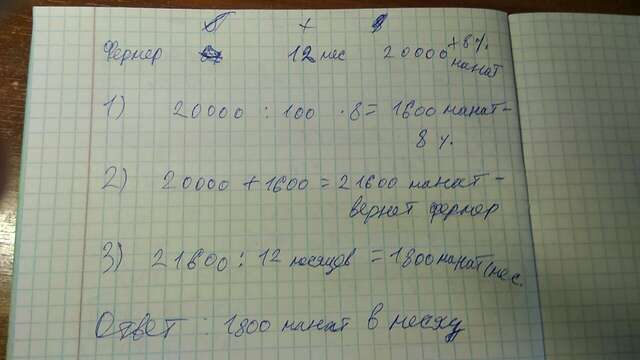 Фермер 12 мес 20000 + 8% манат
1) 20000 : 100 · 8 = 1600 манат -
8%
2) 20000 + 1600 = 21600 манат -
вернет фермер
3) 21600 : 12 месяцов = 1800 манат/мес.
Ответ : 1800 манат в месяц